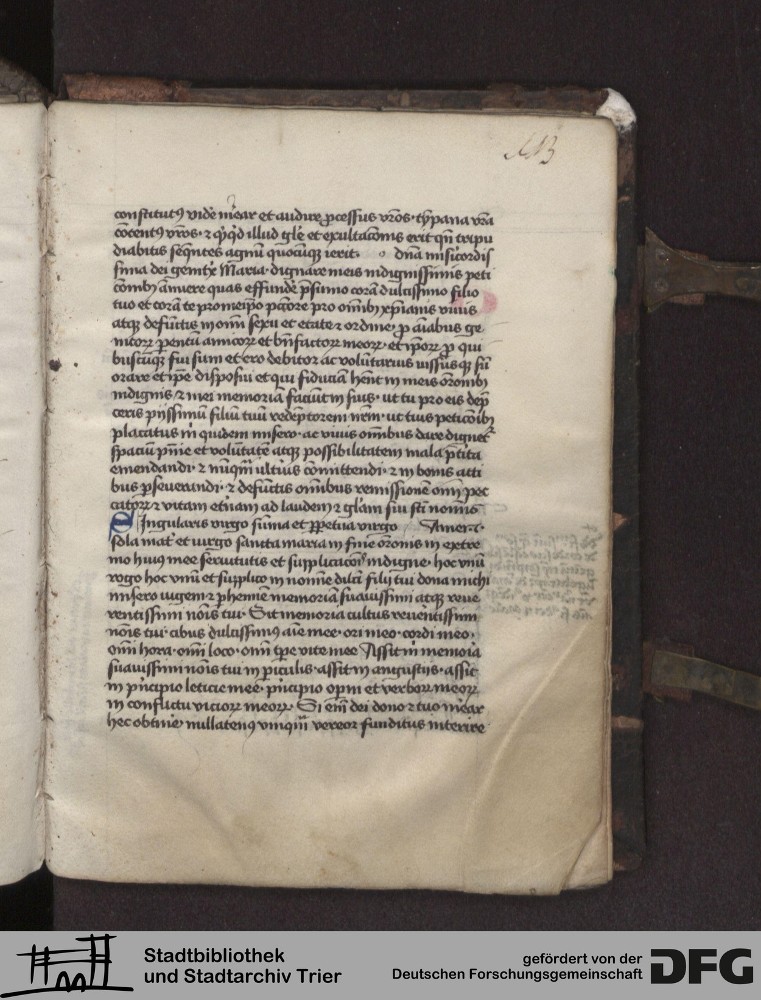 113
constitut9 vide m̄ear et audire ꝓcessus vr̄os · tẏpana vr̄a
cōcent9 vr̄os · ⁊ qͥqͥd illud gl̄e et exultacōnis erit qn̄ tripu
diabitis seqn̄tes agnū quocūqꝫ ierit · dn̄a misicordis
sima dei genitͥx Maria · dignare meis indignissimis peti
comb9 ānuere quas effunde p̄sumo corā dulcissimo filio
tuo et corā te pro meip̄o pctōre pro om̄ib9 xp̄ianis viuis
atqꝫ defūctis in om̄i sexu et etate ⁊ ordine · ꝓ aīabus ge
nitoꝝ pentū amicoꝝ et bn̄factoꝝ meoꝝ · et ip̄oꝝ ꝓ qui
buscūqꝫ fui sum et ero debitor ac voluntarius iussusqꝫ sū
orare et ip̄e disposui et qui fiduciā hēnt in meis orōnib9
indignis ⁊ mei memoriā faciūt in suis · ut tu pro eis dep̄
ceris pijssimū filiū tuū redēptorem nr̄m · ut tuis peticōib9
placatus m̄ quidem misero · ac viuis om̄ibus dare dignet
spaciū pn̄ie et volūtatē atqꝫ possibilitatem mala ꝑtita
emendandi · ⁊ nūqm̄ ultius cōmittendi · ⁊ in bonis acti
bus ꝑseuerandi · ⁊ defūctis om̄ibus remissionē om̄ pec
catoꝝ ⁊ vitam et̄nam ad laudem ⁊ gl̄am sui sc̄i nōnis
Singularis virgo sūma et ꝑpetua virgo Amen ·
sola mat̄ et uirgo sancta maria in fine orōnis in extre
mo huius mee seruitutis et supplicacōn̄ indigne · hoc vnū
rogo hoc vnū et supplico in noīne dulci filij tui dona michi
misero iugem ⁊ ꝑhennē memoriā suauissimi atqꝫ reue
rentissimi nōis tui · Sit memoria cultus reuentissimi
nōis tui · cibus dulcissim9 aīe mee · ori meo · cordi meo ·
om̄i hora · om̄i loco · om̄i tp̄e vite mee Assit m̄ memoīa
suauissimi nōis tui in ꝑiculis · assit in angustijs · assit
in pͥncipio leticie mee · pͥncipio opm̄ et verboꝝ meoꝝ
in conflictu vicioꝝ meoꝝ · Si em̄ dei dono ⁊ tuo m̄ear
hec obtinē nullaten9 vniqm̄ vereor funditus interire
Stadtbibliothek
und Stadtarchiv Trier
gefördert von der
Deutschen Forschungsgemeinschaft
DFG